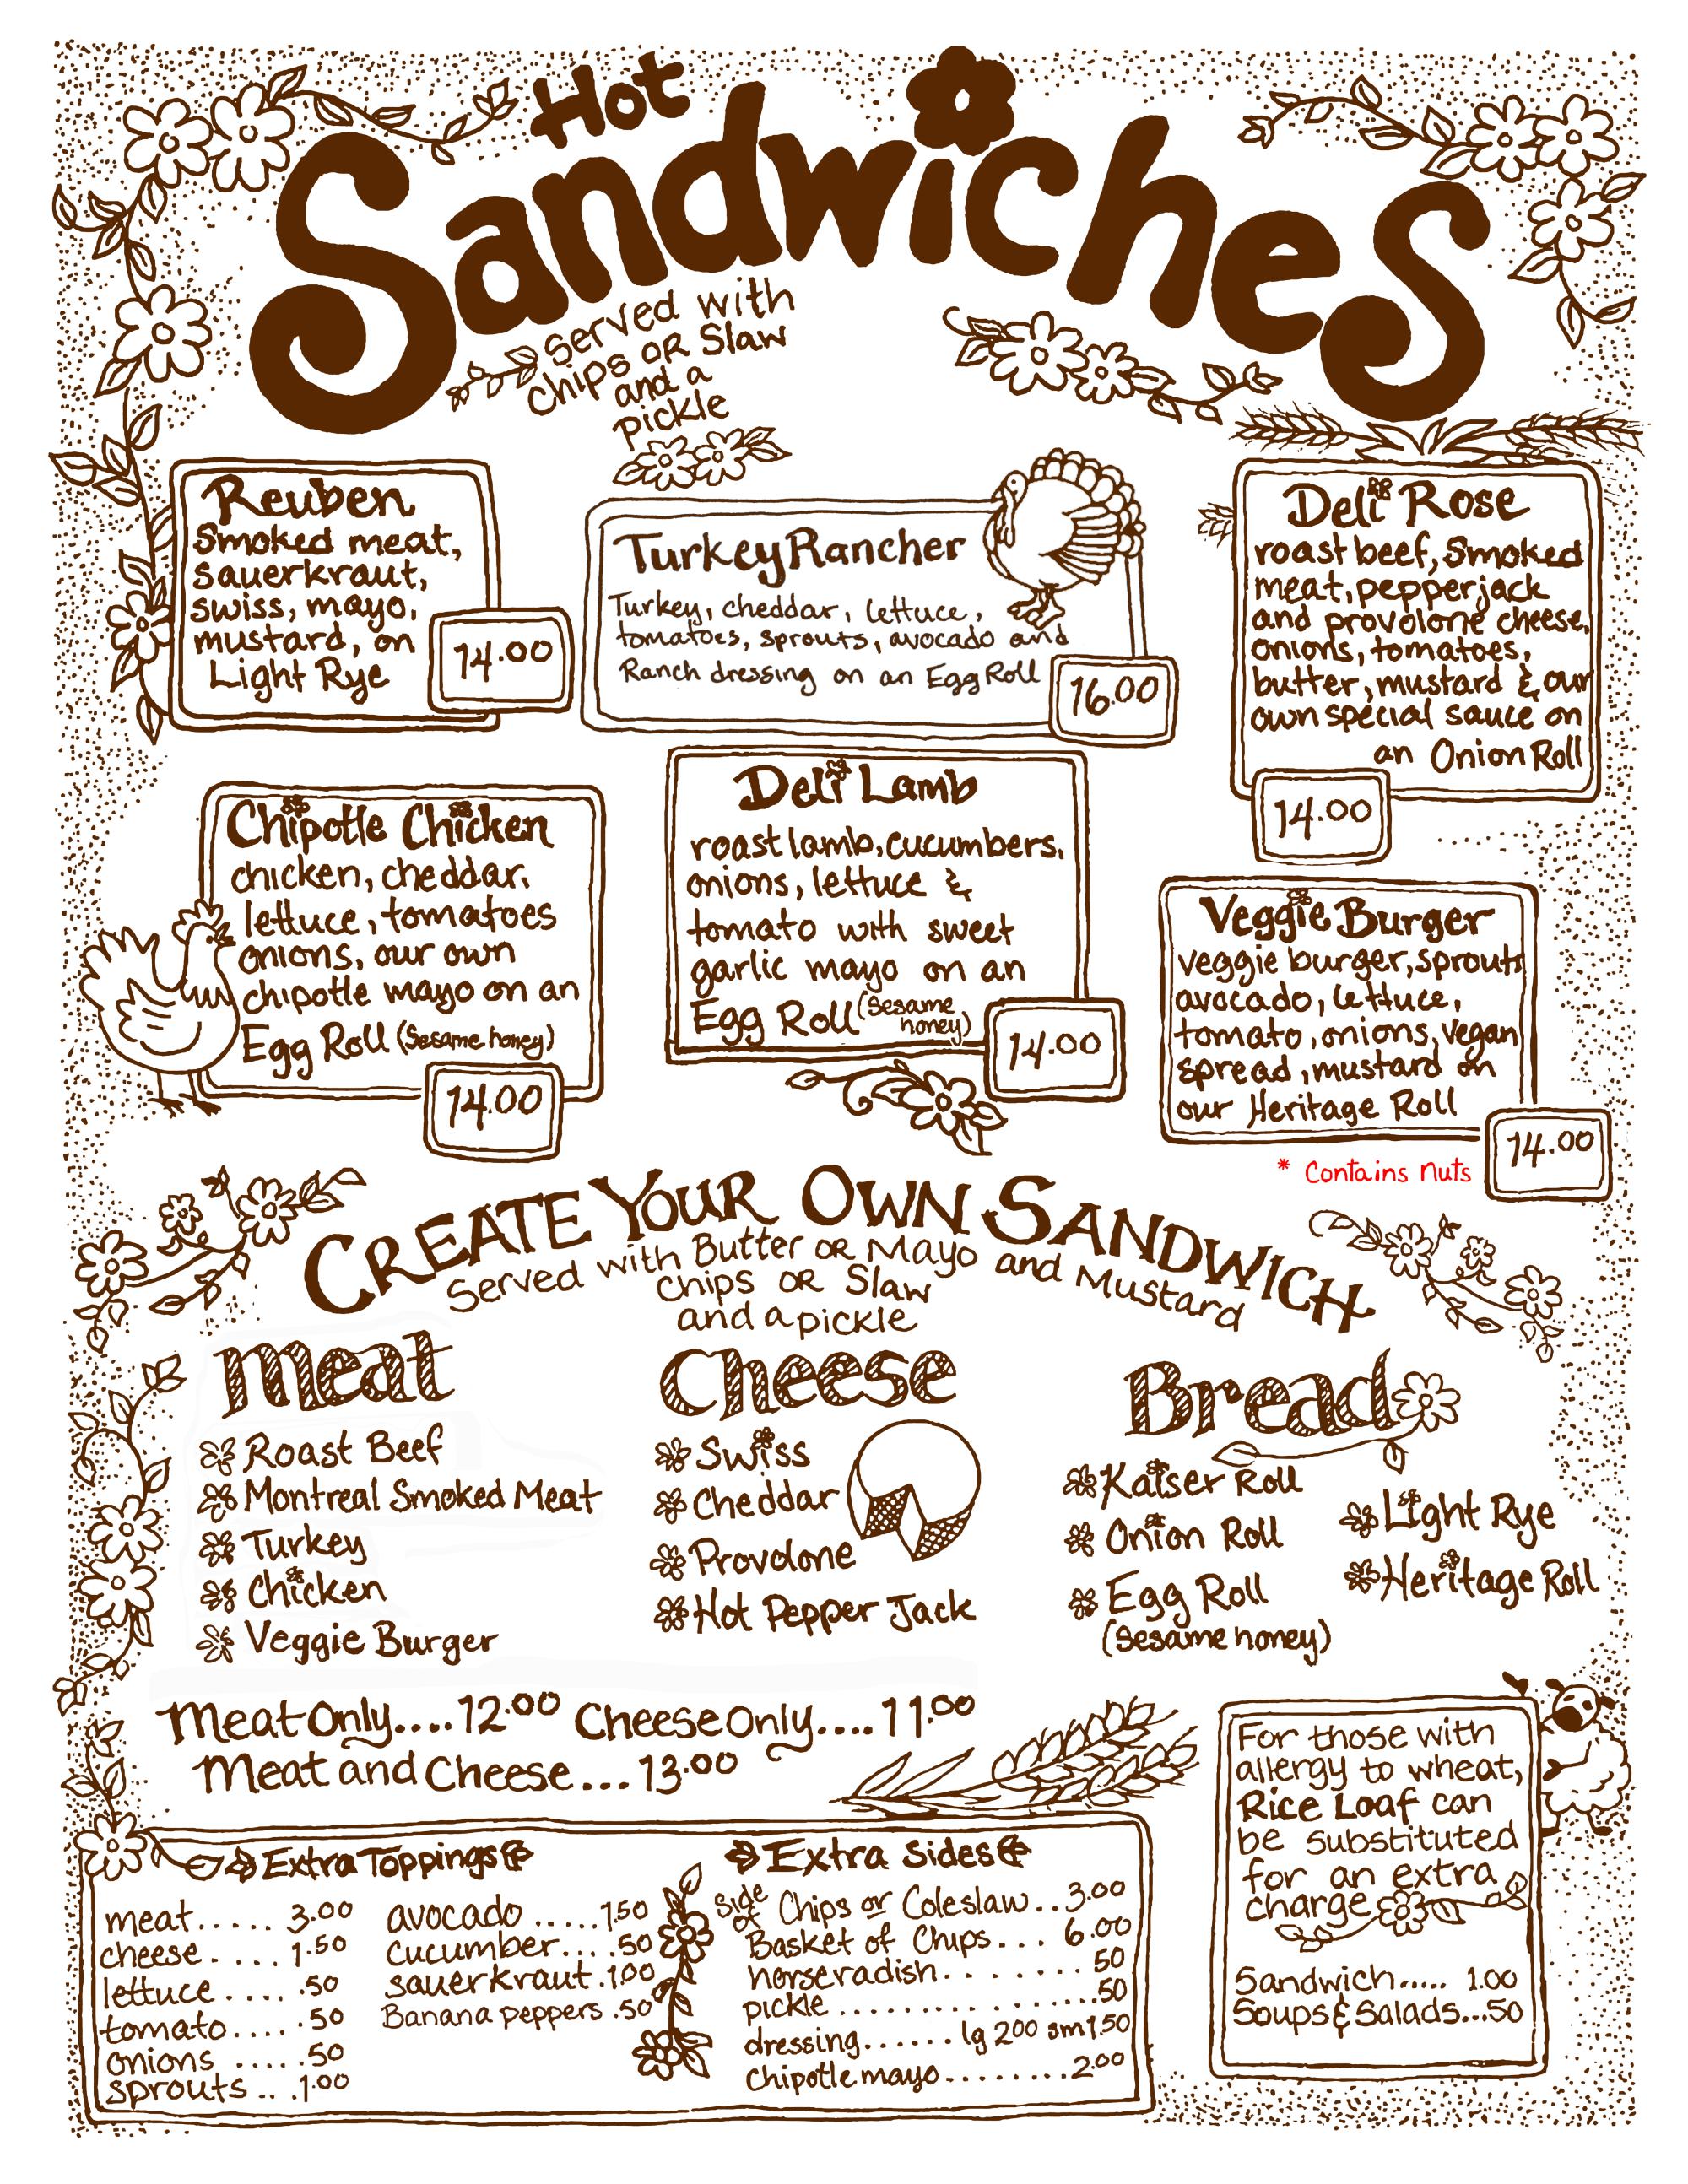 Hot
Sandwiches
served with
Chips OR Slaw
and a
pickle
Reuben
Smoked meat,
sauerkraut,
swiss, mayo,
mustard, on
Light Rye
14.00
Turkey Rancher
Turkey, cheddar, lettuce,
tomatoes, sprouts, avocado and
Ranch dressing on an Egg Roll
16.00
Deli Rose
roast beef, smoked
meat, pepperjack
and provolone cheese,
onions, tomatoes,
butter, mustard & our
own special sauce on
an Onion Roll
14.00
Chipotle Chicken
chicken, cheddar,
lettuce, tomatoes
onions, our own
chipotle mayo on an
Egg Roll (Sesame honey)
14.00
Deli Lamb
roast lamb, cucumbers,
onions, lettuce &
tomato with sweet
garlic mayo on an
Egg Roll (Sesame
honey)
14.00
Veggie Burger
veggie burger, sprouts
avocado, lettuce,
tomato, onions, vegan
spread, mustard on
our Heritage Roll
14.00
* Contains nuts
CREATE YOUR OWN SANDWICH
Served with Butter OR Mayo and Mustard
Chips OR Slaw
and a pickle
Meat
Roast Beef
Montreal Smoked Meat
Turkey
Chicken
Veggie Burger
Cheese
Swiss
Cheddar
Provolone
Hot Pepper Jack
Bread
Kaiser Roll
Onion Roll
Egg Roll
(Sesame honey)
Light Rye
Heritage Roll
Meat Only....12.00 Cheese Only....11.00
Meat and Cheese...13.00
Extra Toppings
meat..... 3.00
cheese..... 1.50
lettuce.... .50
tomato.... .50
onions ..... .50
sprouts... .1.00
avocado .....1.50
cucumber.... .50
sauerkraut .1.00
Banana peppers .50
Extra Sides
Side of Chips or Coleslaw..3.00
Basket of Chips... 6.00
horseradish....... 50
pickle .................50
dressing...... lg 2.00 sm 1.50
Chipotle mayo........2.00
For those with
allergy to wheat,
Rice Loaf can
be substituted
for an extra
charge
Sandwich..... 1.00
Soups & Salads...50